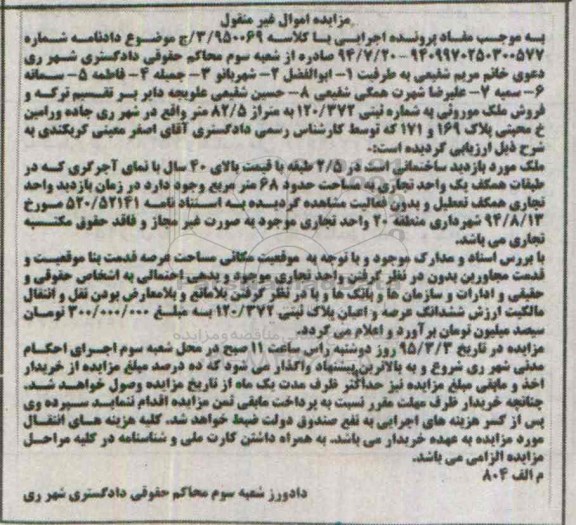 مزایده اموال غیر منقول
به موجب مفاد پرونده اجرایی با کلاسه ۳/۹۵۰۰۶۹/ج موضوع دادنامه شماره
۹۴۰۹۹۷۰۲۵۰۳۰۰۵۷۷ - ۹۴/۷/۲۰ صادره از شعبه سوم محاکم حقوقی دادگستری شهر ری
دعوی خانم مریم شفیعی به طرفیت ۱- ابوالفضل ۲- شهربانو ۳- جمیله ۴- فاطمه ۵- سمانه
۶- سمیه ۷- علیرضا شهرت همگی شفیعی ۸- حسین شفیعی علویجه دایر بر تقسیم ترکه و
فروش ملک موروثی به شماره ثبتی ۱۲۰/۳۷۲ به متراژ ۸۲/۵ متر واقع در شهر ری جاده ورامین
خ محبتی پلاک ۱۶۹ و ۱۷۱ که توسط کارشناس رسمی دادگستری آقای اصغر معینی کربکندی به
شرح ذیل ارزیابی گردیده است:-
ملک مورد بازدید ساختمانی است در ۲/۵ طبقه با قیمت بالای ۴۰ سال با نمای آجرگری که در
طبقات همکف یک واحد تجاری به مساحت حدود ۶۸ متر مربع وجود دارد در زمان بازدید واحد
تجاری همکف تعطیل و بدون فعالیت مشاهده گردیده به استناد نامه ۵۲۰/۵۲۱۴۱ مورخ
۹۴/۸/۱۳ شهرداری منطقه ۲۰ واحد تجاری موجود به صورت غیر مجاز و فاقد حقوق مکتسبه
تجاری می باشد.
با بررس اسناد و مدارک موجود و با توجه به موقعیت مکانی مساحت عرصه قدمت بنا موقعیت و
قدمت مجاورین بدون در نظر گرفتن واحد تجاری موجود و بدهی احتمالی به اشخاص حقوقی و
حقیقی و ادارات و سازمان ها و بانک ها و با در نظر گرفتن بلامانع و بلامعارض بودن نقل و انتقال
مالکیت ارزش ششدانگ عرصه و اعیان پلاک ثبتی ۱۲۰/۳۷۲ به مبلغ ۳۰۰/۰۰۰/۰۰۰ تومان
سیصد میلیون تومان برآورد و اعلام می گردد.
مزایده در تاریخ ۹۵/۳/۳ روز دوشنبه راس ساعت ۱۱ صبح در محل شعبه سوم اجرای احکام
مدنی شهر ری شروع و به بالاترین پیشنهاد واگذار می شود که ده درصد مبلغ مزایده از خریدار
اخذ و مابقی مبلغ مزایده نیز حداکثر ظرف مدت یک ماه از تاریخ مزایده وصول خواهد شد.
چنانچه خریدار ظرف مهلت مقرر نسبت به پرداخت مابقی ثمن مزایده اقدام ننماید سپرده وی
پس از کسر هزینه های اجرایی به نفع صندوق دولت ضبط خواهد شد. کلیه هزینه های انتقال
مورد مزایده به عهده خریدار می باشد. به همراه داشتن کارت ملی و شناسنامه در کلیه مراحل
مزایده الزامی می باشد.
م الف ۸۰۴
دادورز شعبه سوم محاکم حقوقی دادگستری شهر ری